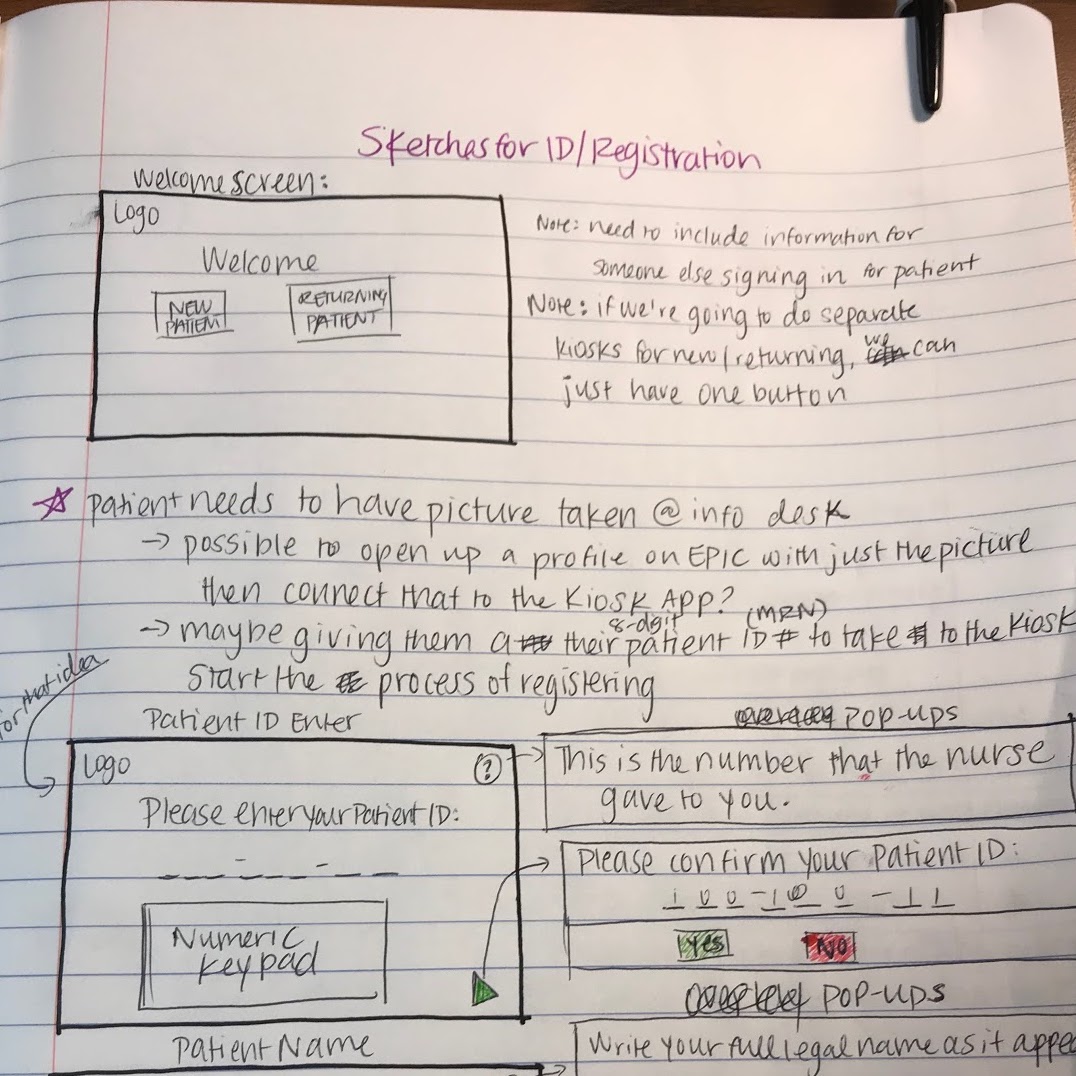 Sketches for ID/Registration
Welcome screen:
Logo
Welcome
NEW
PATIENT
RETURNING
PATIENT
Note: need to include information for
someone else signing in for patient
Note: if we're going to do separate
kiosks for new/returning, we can
just have one button
☆ patient needs to have picture taken @ info desk
→ possible to open up a profile on EPIC with just the picture
then connect that to the Kiosk APP?
8-digit (MRN)
→ maybe giving them their patient ID # to take to the Kiosk
Start the process of registering
for that idea
Patient ID Enter
Logo
?
Please enter your Patient ID:
_ _ _ - _ _ _ - _ _
Numeric
keypad
POP-UPS
This is the number that the nurse
gave to you.
Please confirm your Patient ID:
100-100-11
Yes
No
POP-UPS
Patient Name
Write your full legal name as it